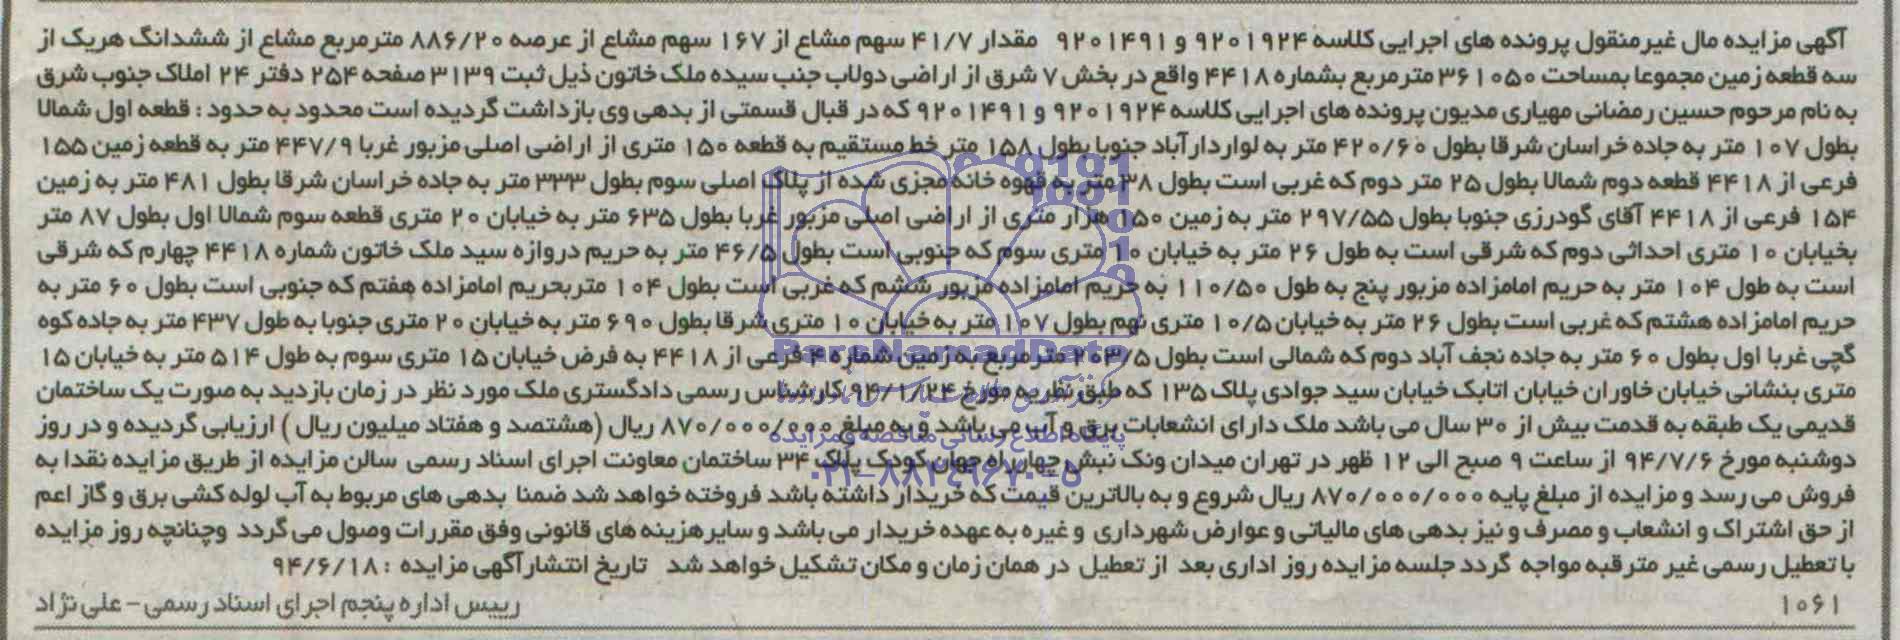 آگهی مزایده مال غیرمنقول پرونده های اجرایی کلاسه ۹۲۰۱۹۲۴ و ۹۲۰۱۴۹۱ مقدار ۴۱/۷ سهم مشاع از ۱۶۷ سهم مشاع از عرصه ۸۸۶/۲۰ مترمربع مشاع از ششدانگ هریک از
سه قطعه زمین مجموعا بمساحت ۳۶۱۰۵۰ مترمربع بشماره ۴۴۱۸ واقع در بخش ۷ شرق از اراضی دولاب جنب سیده ملک خاتون ذیل ثبت ۳۱۳۹ صفحه ۲۵۴ دفتر ۲۴ املاک جنوب شرق
به نام مرحوم حسین رمضانی مهیاری مدیون پرونده های اجرایی کلاسه ۹۲۰۱۹۲۴ و ۹۲۰۱۴۹۱ که در قبال قسمتی از بدهی وی بازداشت گردیده است محدود به حدود : قطعه اول شمالا
بطول ۱۰۷ متر به جاده خراسان شرقا بطول ۴۲۰/۶۰ متر به لواردارآباد جنوبا بطول ۱۵۸ متر خط مستقیم به قطعه ۱۵۰ متری از اراضی اصلی مزبور غربا ۴۴۷/۹ متر به قطعه زمین ۱۵۵
فرعی از ۴۴۱۸ قطعه دوم شمالا بطول ۲۵ متر دوم که غربی است بطول ۳۸ متر به قهوه خانه مجزی شده از پلاک اصلی سوم بطول ۳۳۳ متر به جاده خراسان شرقا بطول ۴۸۱ متر به زمین
۱۵۴ فرعی از ۴۴۱۸ آقای گودرزی جنوبا بطول ۲۹۷/۵۵ متر به زمین ۱۵۰ هزار متری از اراضی اصلی مزبور غربا بطول ۶۳۵ متر به خیابان ۲۰ متری قطعه سوم شمالا اول بطول ۸۷ متر
بخیابان ۱۰ متری احداثی دوم که شرقی است به طول ۲۶ متر به خیابان ۱۰ متری سوم که جنوبی است بطول ۴۶/۵ متر به حریم دروازه سید ملک خاتون شماره ۴۴۱۸ چهارم که شرقی
است به طول ۱۰۴ متر به حریم امامزاده مزبور پنج به طول ۱۱۰/۵۰ به حریم امامزاده مزبور ششم که غربی است بطول ۱۰۴ متربحریم امامزاده هفتم که جنوبی است بطول ۶۰ متر به
حریم امامزاده هشتم که غربی است بطول ۲۶ متر به خیابان ۱۰/۵ متری نهم بطول ۱۰۷ متر به خیابان ۱۰ متری شرقا بطول ۶۹۰ متر به خیابان ۲۰ متری جنوبا به طول ۴۳۷ متر به جاده کوه
گچی غربا اول بطول ۶۰ متر به جاده نجف آباد دوم که شمالی است بطول ۲۰۳/۵ مترمربع به زمین شماره ۴ فرعی از ۴۴۱۸ به فرض خیابان ۱۵ متری سوم به طول ۵۱۴ متر به خیابان ۱۵
متری بنشانی خیابان خاوران خیابان اتابک خیابان سید جوادی پلاک ۱۳۵ که طبق نظریه مورخ ۹۴/۱/۲۴ کارشناس رسمی دادگستری ملک مورد نظر در زمان بازدید به صورت یک ساختمان
قدیمی یک طبقه به قدمت بیش از ۳۰ سال می باشد ملک دارای انشعابات برق و آب می باشد و به مبلغ ۸۷۰/۰۰۰/۰۰۰ ریال (هشتصد و هفتاد میلیون ریال ) ارزیابی گردیده و در روز
دوشنبه مورخ ۹۴/۷/۶ از ساعت ۹ صبح الی ۱۲ ظهر در تهران میدان ونک نبش چهارراه جهان کودک پلاک ۳۴ ساختمان معاونت اجرای اسناد رسمی سالن مزایده از طریق مزایده نقدا به
فروش می رسد و مزایده از مبلغ پایه ۸۷۰/۰۰۰/۰۰۰ ریال شروع و به بالاترین قیمت که خریدار داشته باشد فروخته خواهد شد ضمنا بدهی های مربوط به آب لوله کشی برق و گاز اعم
از حق اشتراک و انشعاب و مصرف و نیز بدهی های مالیاتی و عوارض شهرداری و غیره به عهده خریدار می باشد و سایر هزینه های قانونی وفق مقررات وصول می گردد وچنانچه روز مزایده
با تعطیل رسمی غیر مترقبه مواجه گردد جلسه مزایده روز اداری بعد از تعطیل در همان زمان و مکان تشکیل خواهد شد تاریخ انتشارآگهی مزایده : ۹۴/۶/۱۸
۱۰۶۱ رییس اداره پنجم اجرای اسناد رسمی - علی نژاد
ParsNamadData
پایگاه اطلاع رسانی مناقصه و مزایده
۰۲۱-۸۸۳۴۹۶۷۰-۵